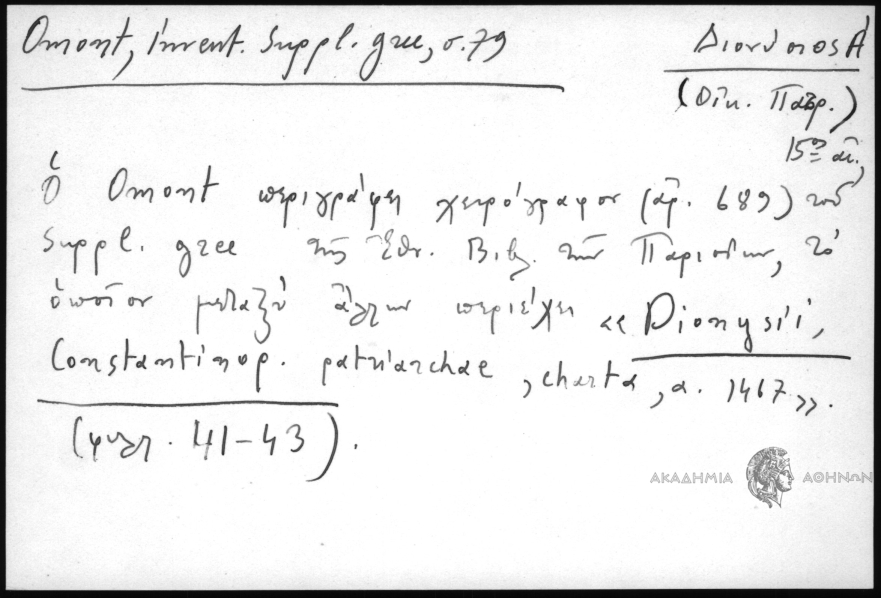 Omont, Invent. Suppl. grec, σ. 79
Διονύσιος Α΄
(Οἰκ. Πατρ.)
15ος αἰ.
Ὁ Omont περιγράφει χειρόγραφον (ἀρ. 689) τοῦ
Suppl. grec τῆς Ἐθν. Βιβ. τῶν Παρισίων, τὸ
ὁποῖον μεταξὺ ἄλλων περιέχει «Dionysii,
Constantinop. patriarchae, charta, a. 1467».
(φύλλ. 41-43).
ΑΚΑΔΗΜΙΑ ΑΘΗΝΩΝ